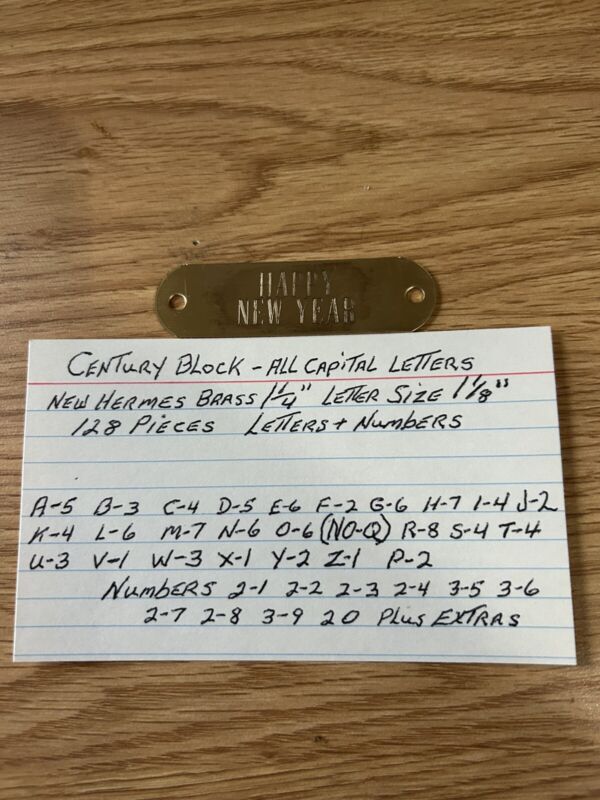 HAPPY
NEW YEAR
CENTURY BLOCK - ALL CAPITAL LETTERS
NEW HERMES BRASS 1 1/4" LETTER SIZE 1 1/8"
128 PIECES LETTERS + NUMBERS
A-5 B-3 C-4 D-5 E-6 F-2 G-6 H-7 I-4 J-2
K-4 L-6 M-7 N-6 O-6 (NO-Q) R-8 S-4 T-4
U-3 V-1 W-3 X-1 Y-2 Z-1 P-2
NUMBERS 2-1 2-2 2-3 2-4 3-5 3-6
2-7 2-8 3-9 20 PLUS EXTRAS